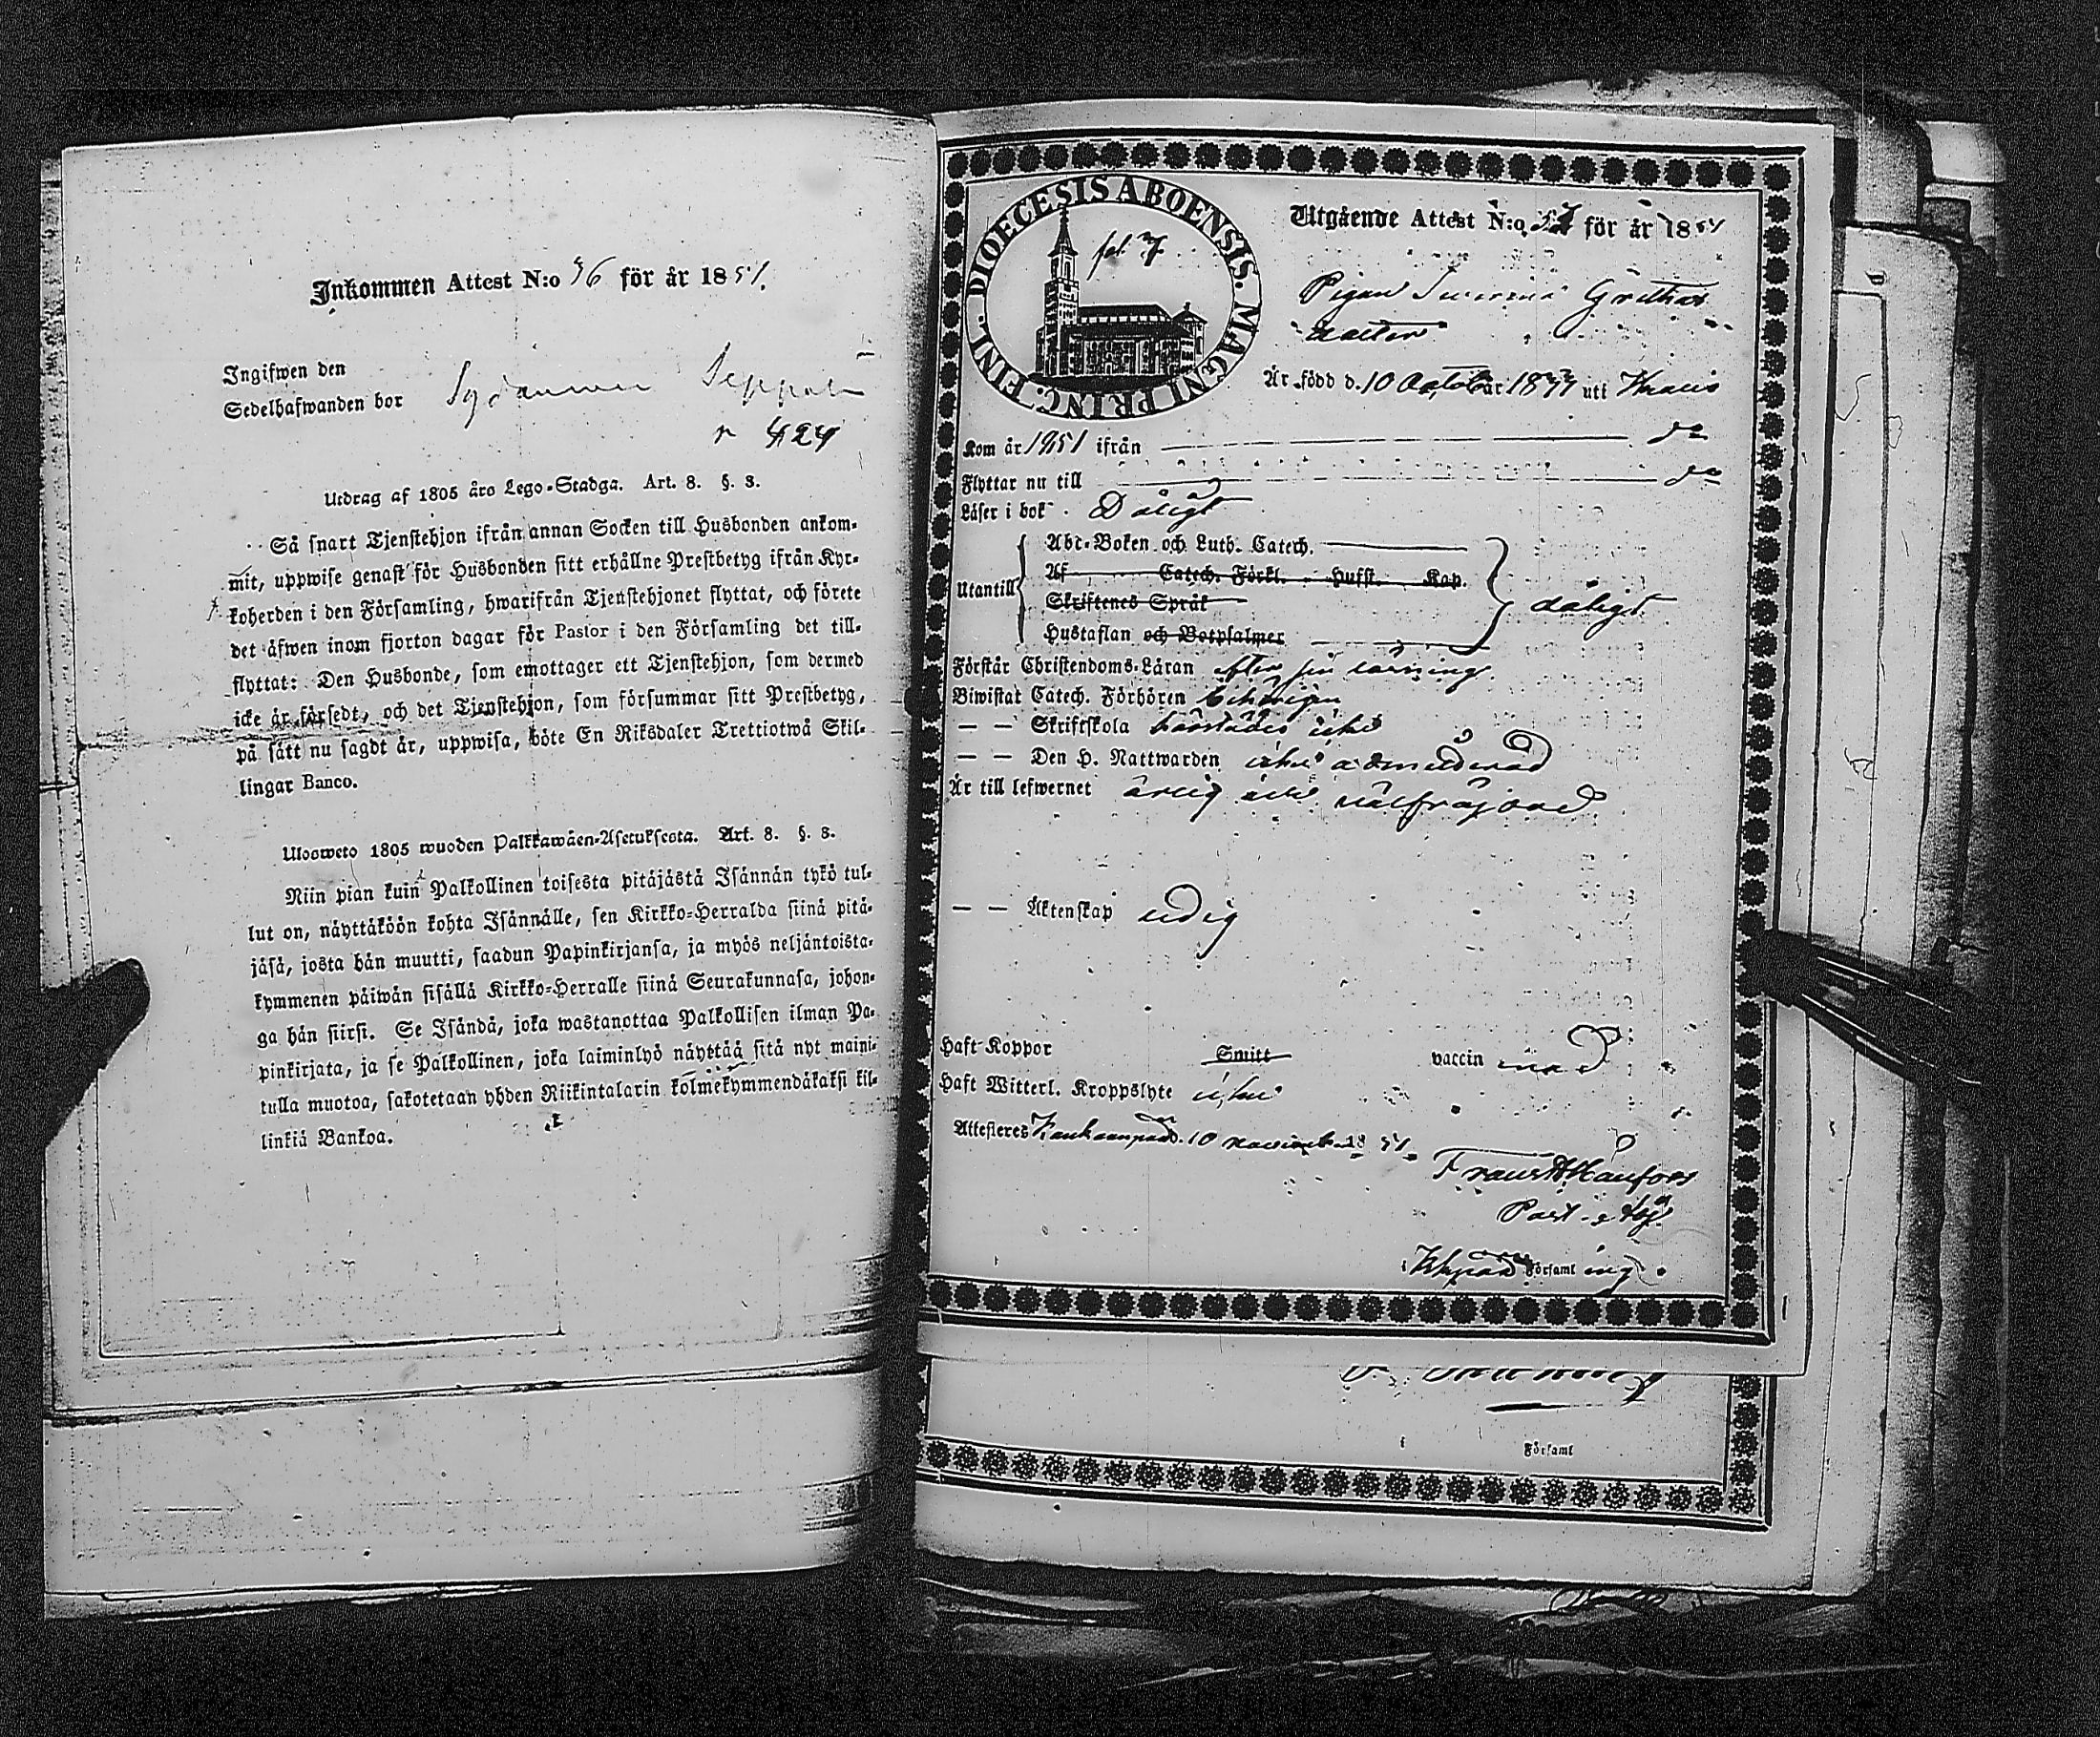 Inkommen Attest N:o 36 för år 1851.
Ingifwen den
Sedelhafwanden bor
424
Utdrag af 1805 års Lego-Stadga. Art. 8. §. 3.
Så snart Tjenstehjon ifrån annan Socken till Husbonden ankom-
mit, uppwise genast för Husbonden sitt erhållne Prestbetyg ifrån Kyr-
koherden i den Församling, hwarifrån Tjenstehjonet flyttat, och förete
det äfwen inom fjorton dagar för Pastor i den Församling det till-
flyttat: Den Husbonde, som emottager ett Tjenstehjon, som dermed
icke är försedt, och det Tjenstehjon, som försummar sitt Prestbetyg,
på sätt nu sagdt är, uppwisa, böte En Riksdaler Trettiotwå Skil-
lingar Banco.
Ulosweto 1805 wuoden Palkkawäen-Asetuksesta. Art. 8. §. 3.
Niin pian kuin Palkollinen toisesta pitäjästä Isännän tykö tul-
lut on, näyttäköön kohta Isännälle, sen Kirkko-Herralda siinä pitä-
jäsä, josta hän muutti, saadun Papinkirjansa, ja myös neljäntoista-
kymmenen päiwän sisällä Kirkko-Herralle siinä Seurakunnasa, johon-
ga hän siirsi. Se Isändä, joka wastanottaa Palkollisen ilman Pa-
pinkirjata, ja se Palkollinen, joka laiminlyö näyttää sitä nyt maini-
tulla muotoa, sakotetaan yhden Riikintalarin kolmekymmendäkaksi kil-
linkiä Bankoa.
DIOECESIS ABOENSIS. MAGNI PRINC. FINL.
fol. 7
Utgående Attest N:o för år 1851
Pigan Grethas
dotter
Är född d. 10 October 1833 uti
Kom år 1851 ifrån do
Flyttar nu till do
Läser i bok Dåligt
Abc-Boken och Luth. Catech.
Af Catech. Förkl. Hufst. Kap.
Utantill
Skriftenes Språk
dåligt
Hustaflan och Botpsalmer
Förstår Christendoms-Läran efter sin läsning
Biwistat Catech. Förhören behörigen
— — Skriftskola härstädes icke
— — Den H. Nattwarden icke admitterad
Är till lefwernet ärlig icke wälfräjdad
— — Äktenskap ledig
Haft Koppor Smitt vaccinerad
Haft Witterl. Kroppslyte icke
Attesteras Kankaanpää d. 10 november 1851.
Frans
Past.
i Församling.
i Församl